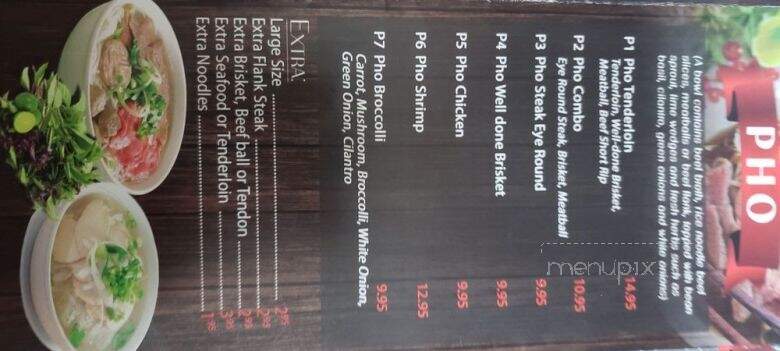 PHO
(A bowl contains beef broth, rice noodle beef
slices, meat balls or beef flank, topped with bean
sprout, lime wedges and fresh herbs such as
basil, cilantro, green onions and white onions)
P1 Pho Tenderloin 14.95
Tenderloin, Well-done Brisket,
Meatball, Beef Short Rip
P2 Pho Combo 10.95
Eye Round Steak, Brisket, Meatball
P3 Pho Steak Eye Round 9.95
P4 Pho Well done Brisket 9.95
P5 Pho Chicken 9.95
P6 Pho Shrimp 12.95
P7 Pho Broccolli 9.95
Carrot, Mushroom, Broccolli, White Onion,
Green Onion, Cilantro
EXTRA:
Large Size 2.95
Extra Flank Steak 2.95
Extra Brisket, Beef ball or Tendon 2.99
Extra Seafood or Tenderloin 3.95
Extra Noodles 1.95
menupix